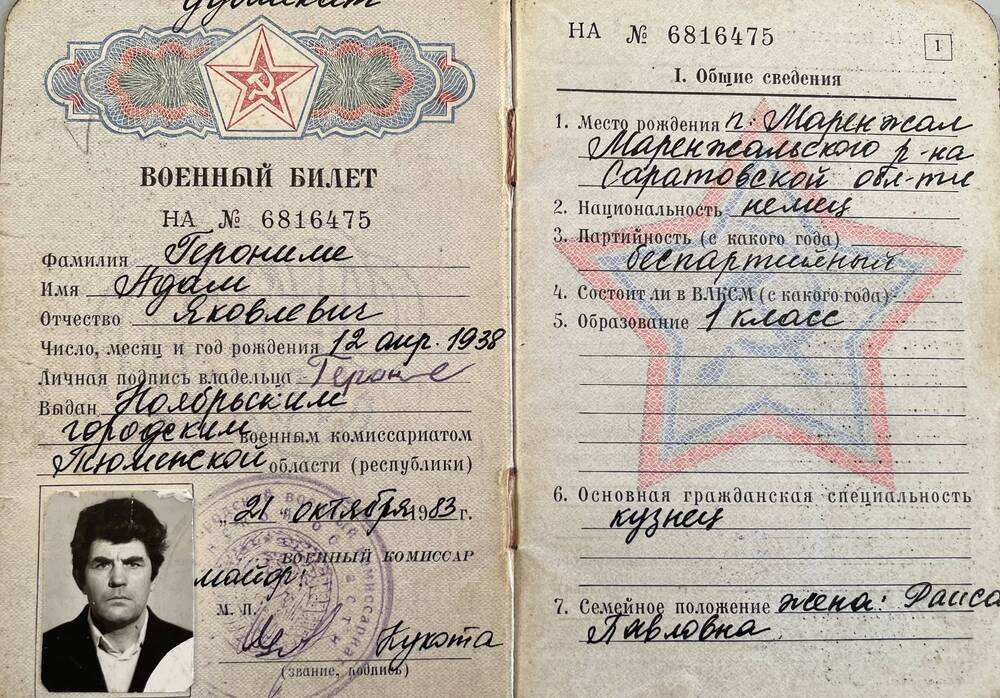 дубликат
ВОЕННЫЙ БИЛЕТ
НА № 6816475
Фамилия Герониме
Имя Адам
Отчество Яковлевич
Число, месяц и год рождения 12 апр. 1938
Личная подпись владельца
Выдан Ноябрьским
городским военным комиссариатом
Тюменской области (республики)
„21" октября 1983 г.
ВОЕННЫЙ КОМИССАР
майор
М. П.
Кукота
(звание, подпись)
НА № 6816475
1
I. Общие сведения
1. Место рождения п. Маренжал
Маренжальского р-на
Саратовской обл-ти
2. Национальность немец
3. Партийность (с какого года)
беспартийный
4. Состоит ли в ВЛКСМ (с какого года) -
5. Образование 1 класс
6. Основная гражданская специальность
кузнец
7. Семейное положение жена: Раиса
Павловна